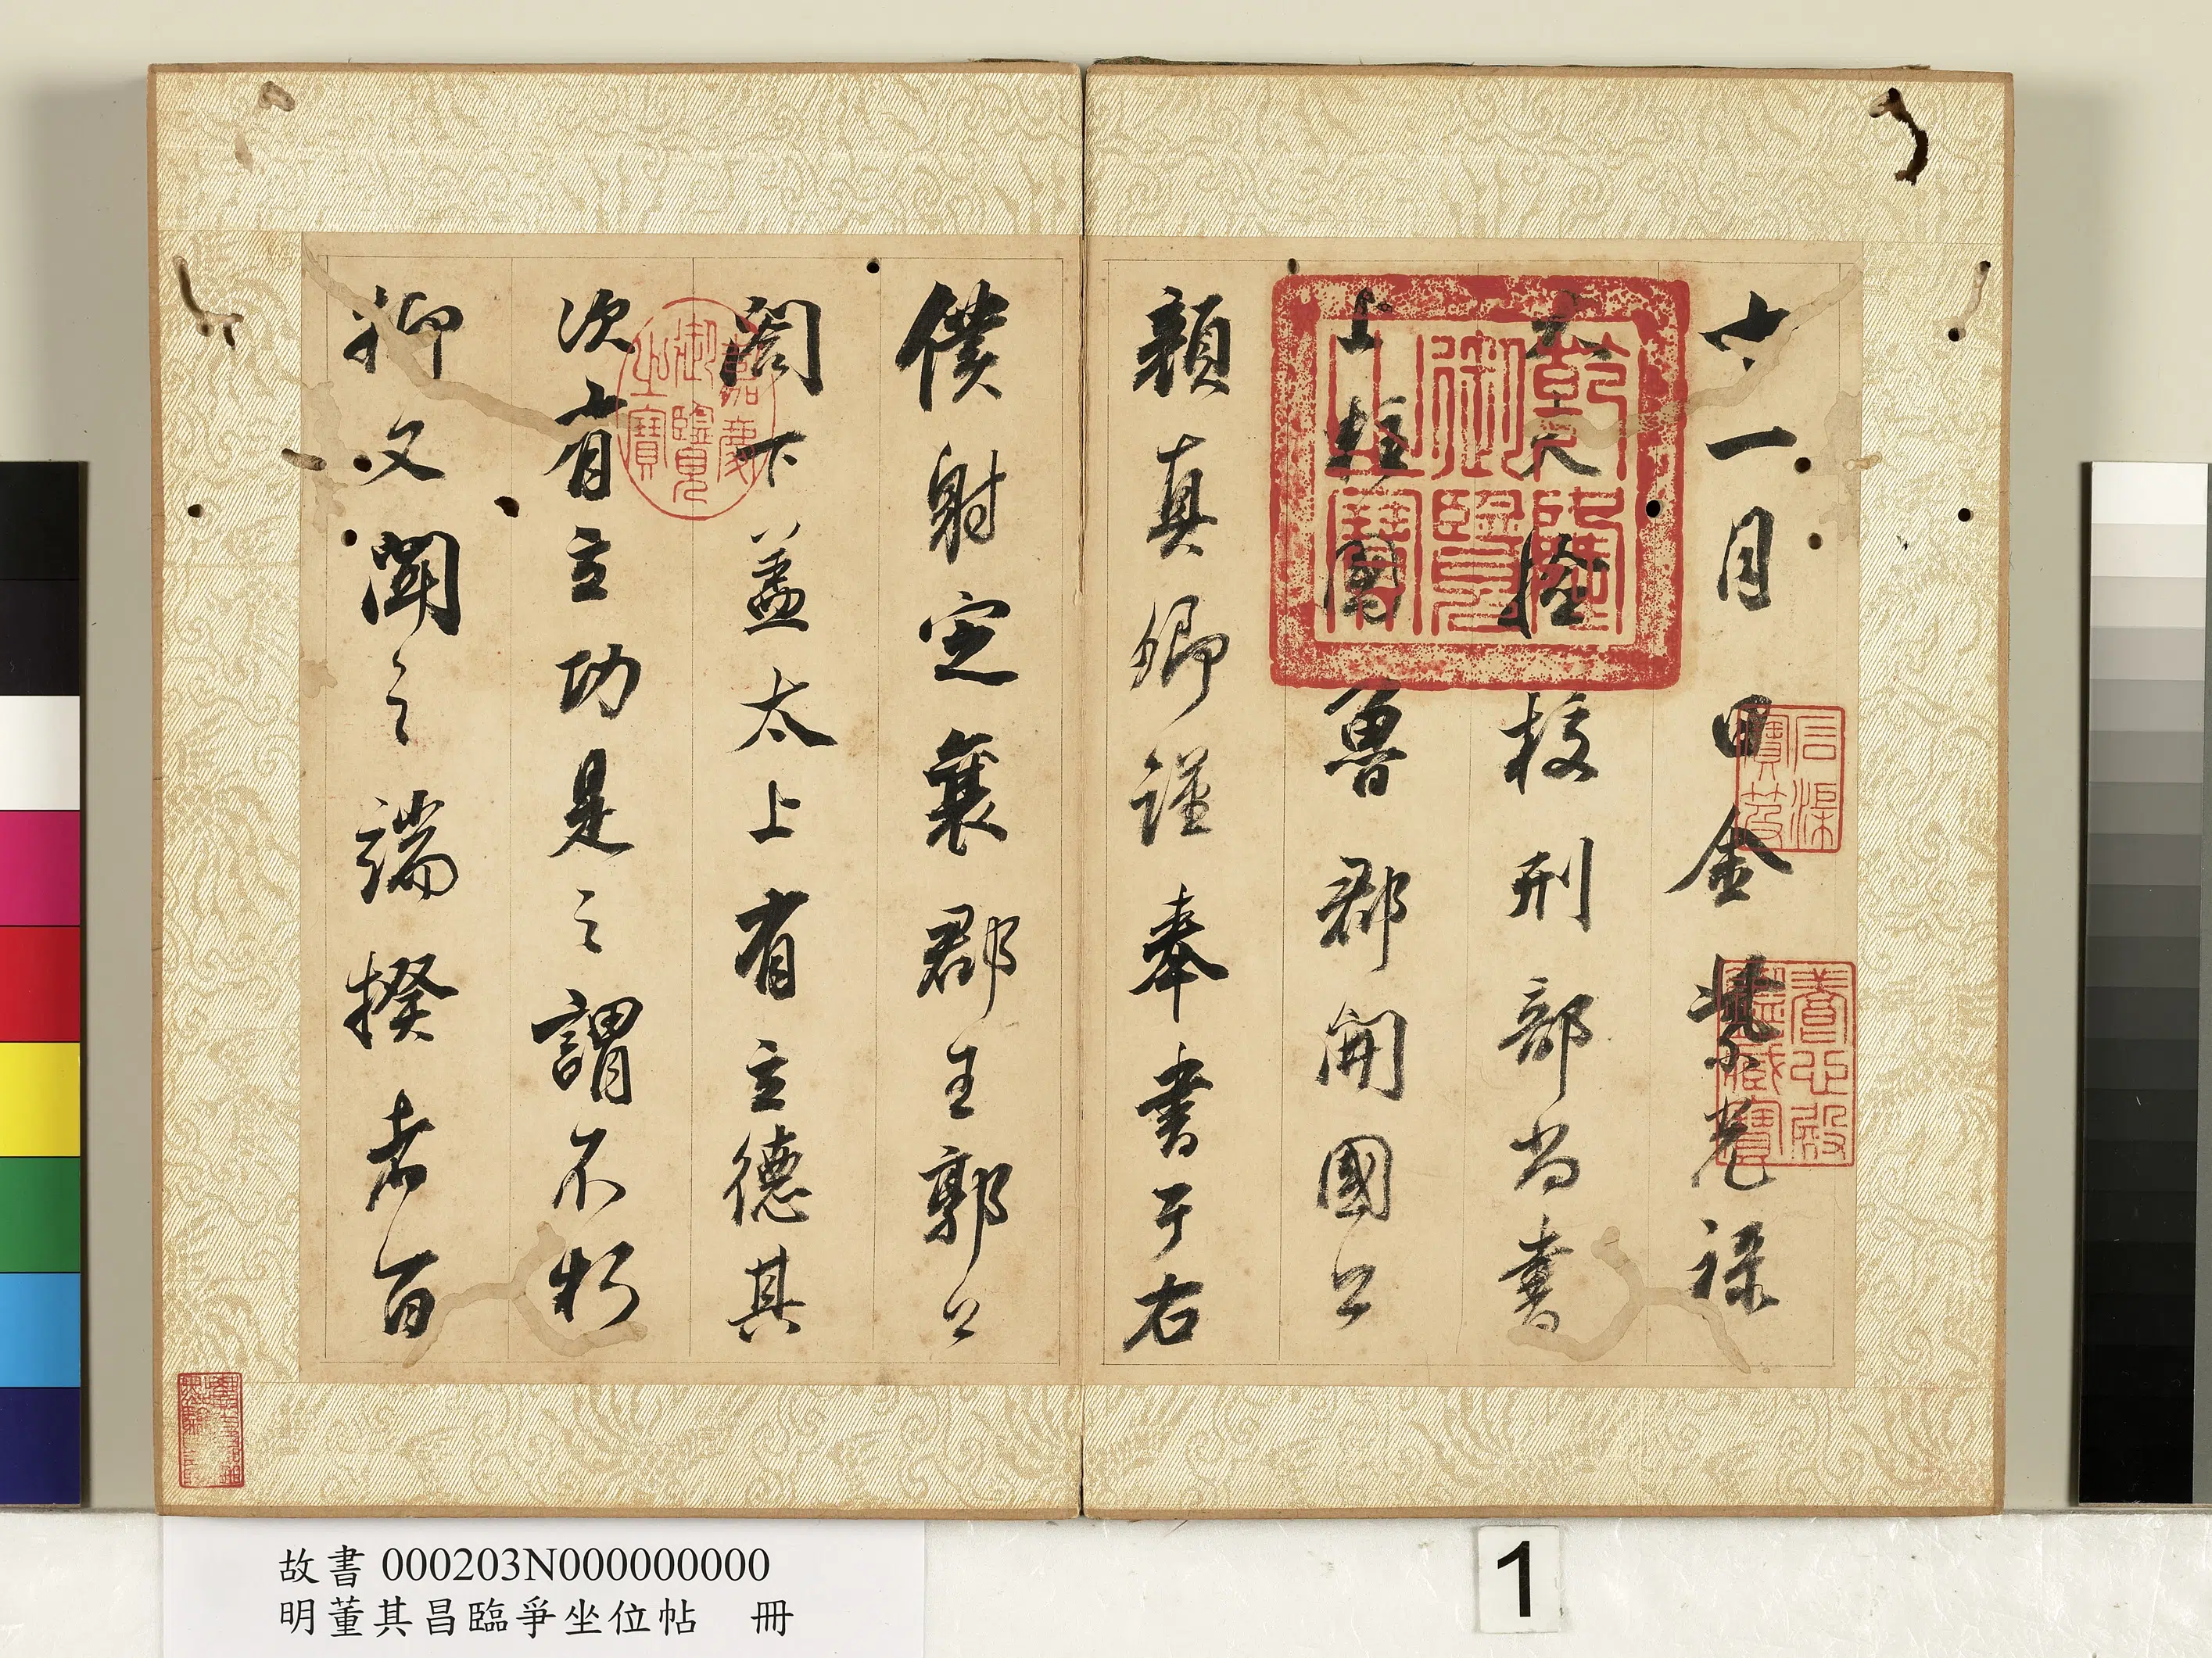 十一月日金紫光祿
大夫檢校刑部尚書
上柱國魯郡開國公
顏真卿謹奉書于右
僕射定襄郡王郭公
閣下蓋太上有立德其
次有立功是之謂不朽
抑又聞之端揆者百
乾隆御覽之寶
石渠寶笈
養心殿鑑藏寶
嘉慶御覽之寶
故書 000203N000000000
明董其昌臨爭坐位帖 冊
1